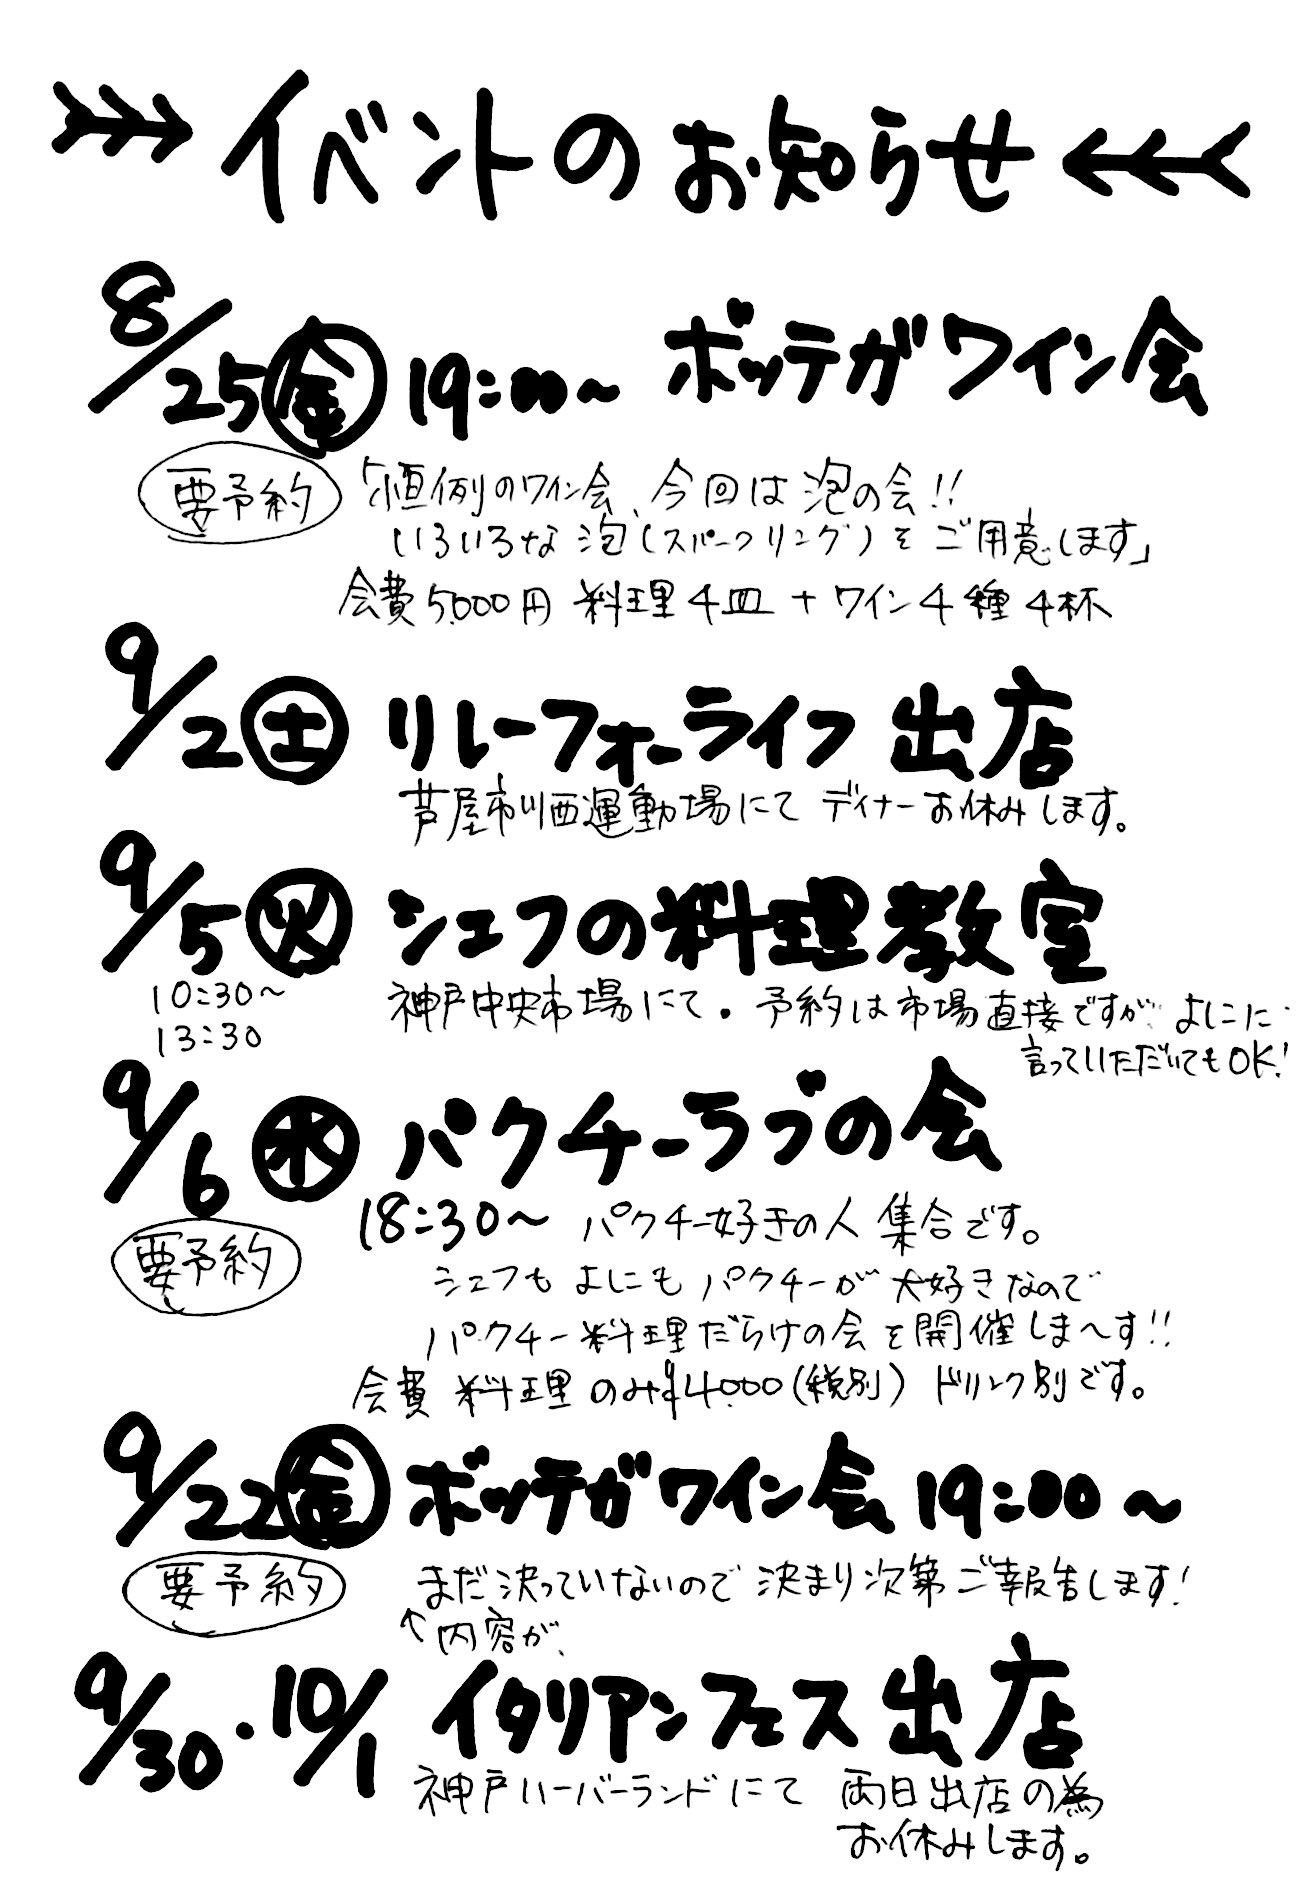 イベントのお知らせ
8/25㊎ 19:00〜 ボッテガワイン会
要予約 「恒例のワイン会、今回は泡の会!!
いろいろな泡(スパークリング)をご用意します」
会費5,000円 料理4皿+ワイン4種4杯
9/2㊏ リレーフォーライフ出店
芦屋市川西運動場にて ディナーお休みします。
9/5㊋ シェフの料理教室
10:30〜
13:30
神戸中央市場にて。予約は市場直接ですが よしこに
言っていただいてもOK!
9/6㊌ パクチーラブの会
要予約
18:30〜 パクチー好きの人 集合です。
シェフも よしこも パクチーが 大好きなので
パクチー料理だらけの会を開催しま〜す!!
会費 料理のみ¥4,000(税別) ドリンク別です。
9/22㊎ ボッテガワイン会 19:00〜
要予約 まだ決っていないので 決まり次第ご報告します!
↑内容が、
9/30・10/1 イタリアンフェス出店
神戸ハーバーランドにて 両日出店の為
お休みします。